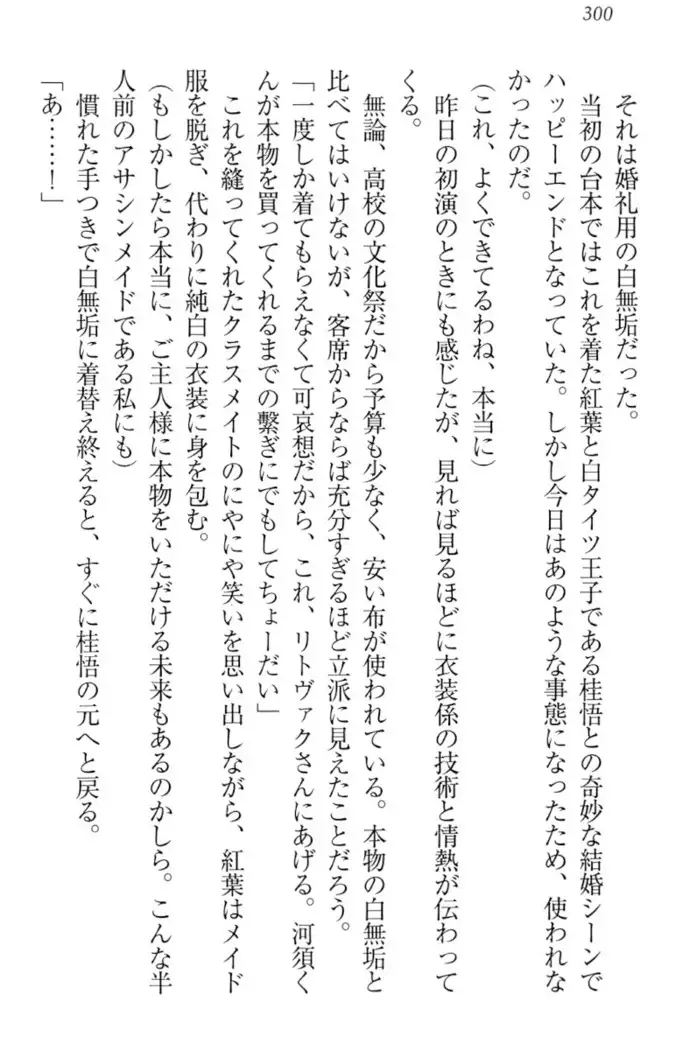 300
それは婚礼用の白無垢だった。
当初の台本ではこれを着た紅葉と白タイツ王子である桂悟との奇妙な結婚シーンで
ハッピーエンドとなっていた。しかし今日はあのような事態になったため、使われな
かったのだ。
(これ、よくできてるわね、本当に)
昨日の初演のときにも感じたが、見れば見るほどに衣装係の技術と情熱が伝わって
くる。
無論、高校の文化祭だから予算も少なく、安い布が使われている。本物の白無垢と
比べてはいけないが、客席からならば充分すぎるほど立派に見えたことだろう。
「一度しか着てもらえなくて可哀想だから、これ、リトヴァクさんにあげる。河須く
んが本物を買ってくれるまでの繋ぎにでもしてちょーだい」
これを縫ってくれたクラスメイトのにやにや笑いを思い出しながら、紅葉はメイド
服を脱ぎ、代わりに純白の衣装に身を包む。
(もしかしたら本当に、ご主人様に本物をいただける未来もあるのかしら。こんな半
人前のアサシンメイドである私にも)
慣れた手つきで白無垢に着替え終えると、すぐに桂悟の元へと戻る。
「あ……!」